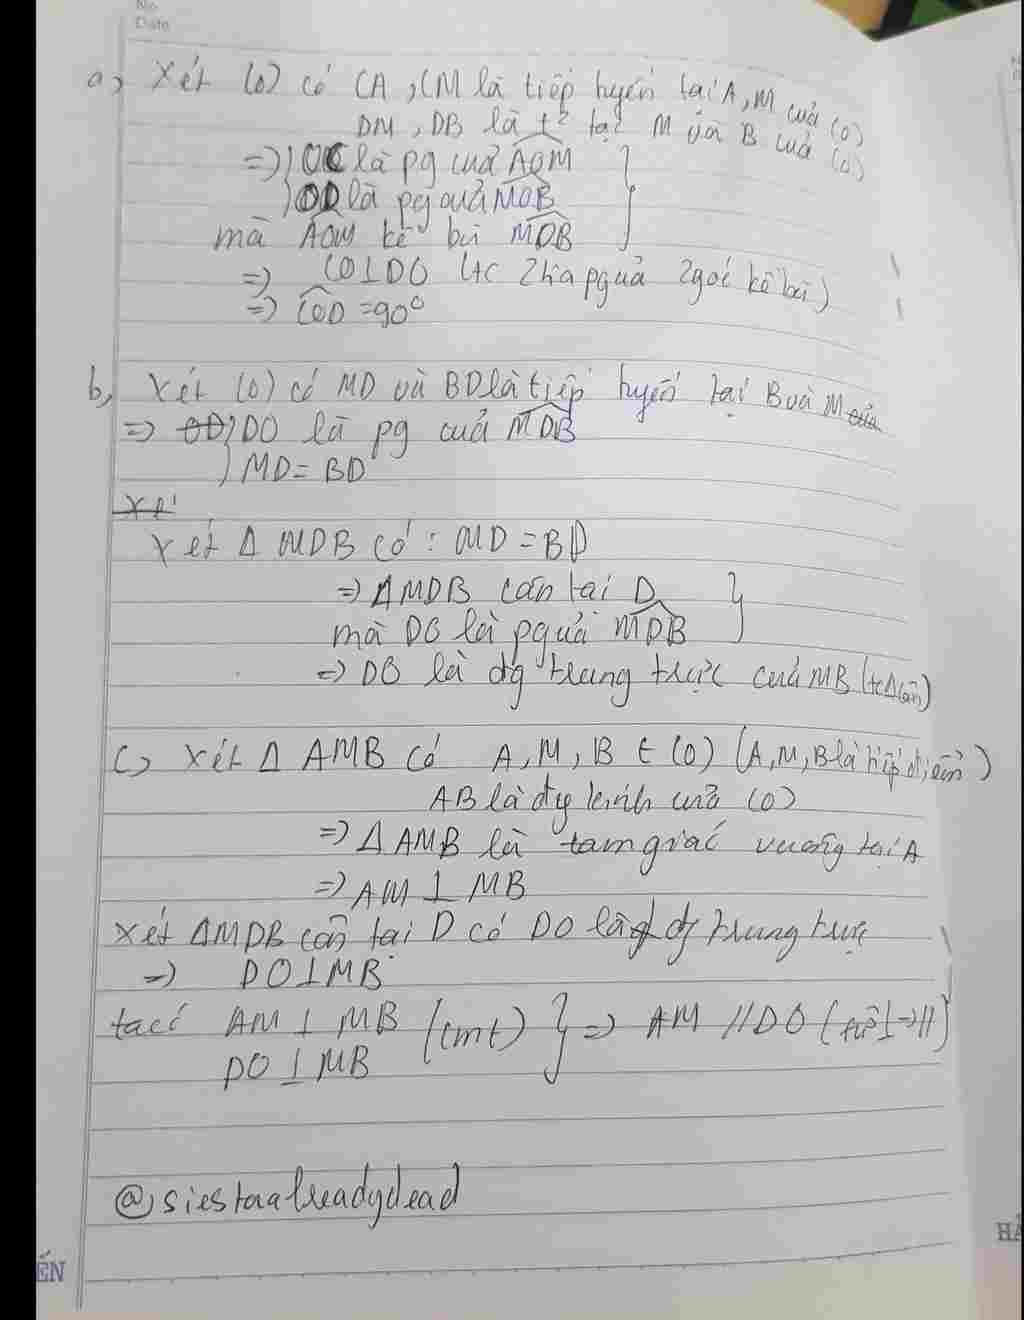 No
Date
a, Xét (O) có CA, CM là tiếp tuyến tại A, M của (O)
DM, DB là t² tại M và B của (O)
=> ) OC là pg của AOM
) OD là pg của MOB
mà AOM kề bù MOB
=> CO⊥DO (tc 2 tia pg của 2 góc kề bù)
=> COD = 90°
b, Xét (O) có MD và BD là tiếp tuyến tại B và M của
=> OD ) DO là pg của MDB
) MD = BD
Xé
Xét Δ MDB có : MD = BD
=> ΔMDB cân tại D
mà DO là pg của MDB
=> DO là đg trung trực của MB (tcΔcân)
c, Xét Δ AMB có A, M, B ∈ (O) (A, M, B là tiếp điểm)
AB là đg kính của (O)
=> Δ AMB là tam giác vuông tại A
=> AM ⊥ MB
Xét ΔMDB cân tại D có DO là đg trung trực
=> DO⊥MB
ta có AM ⊥ MB (cmt) } => AM // DO (từ ⊥->//)
DO ⊥ MB
@siestaalreadydead
ẾN
HẢ